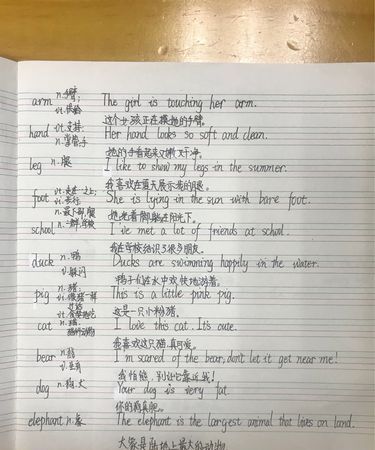 arm n.手臂; The girl is touching her arm.
这个女孩正在摸她的手臂。
hand Her hand looks so soft and clean.
她的手看起来又嫩又干净。
leg n.腿 I like to show my legs in the summer.
我喜欢在夏天展示我的腿。
foot She is lying in the sun with bare foot.
她光着脚躺在阳光下。
school I've met a lot of friends at school.
我在学校结识了很多朋友。
duck n.鸭 Ducks are swimming happily in the water.
鸭子们在水中欢快地游着。
pig n.猪 This is a little pink pig.
这是一只小粉猪。
cat n.猫, I love this cat. It's cute.
我喜欢这只猫,真可爱。
bear n.熊 I'm scared of the bear, don't let it get near me!
我怕熊,别让它靠近我!
dog n.狗,犬 Your dog is very fat.
你的狗真肥。
elephant n.象 The elephant is the largest animal that lives on land.
大象是陆地上最大的动物